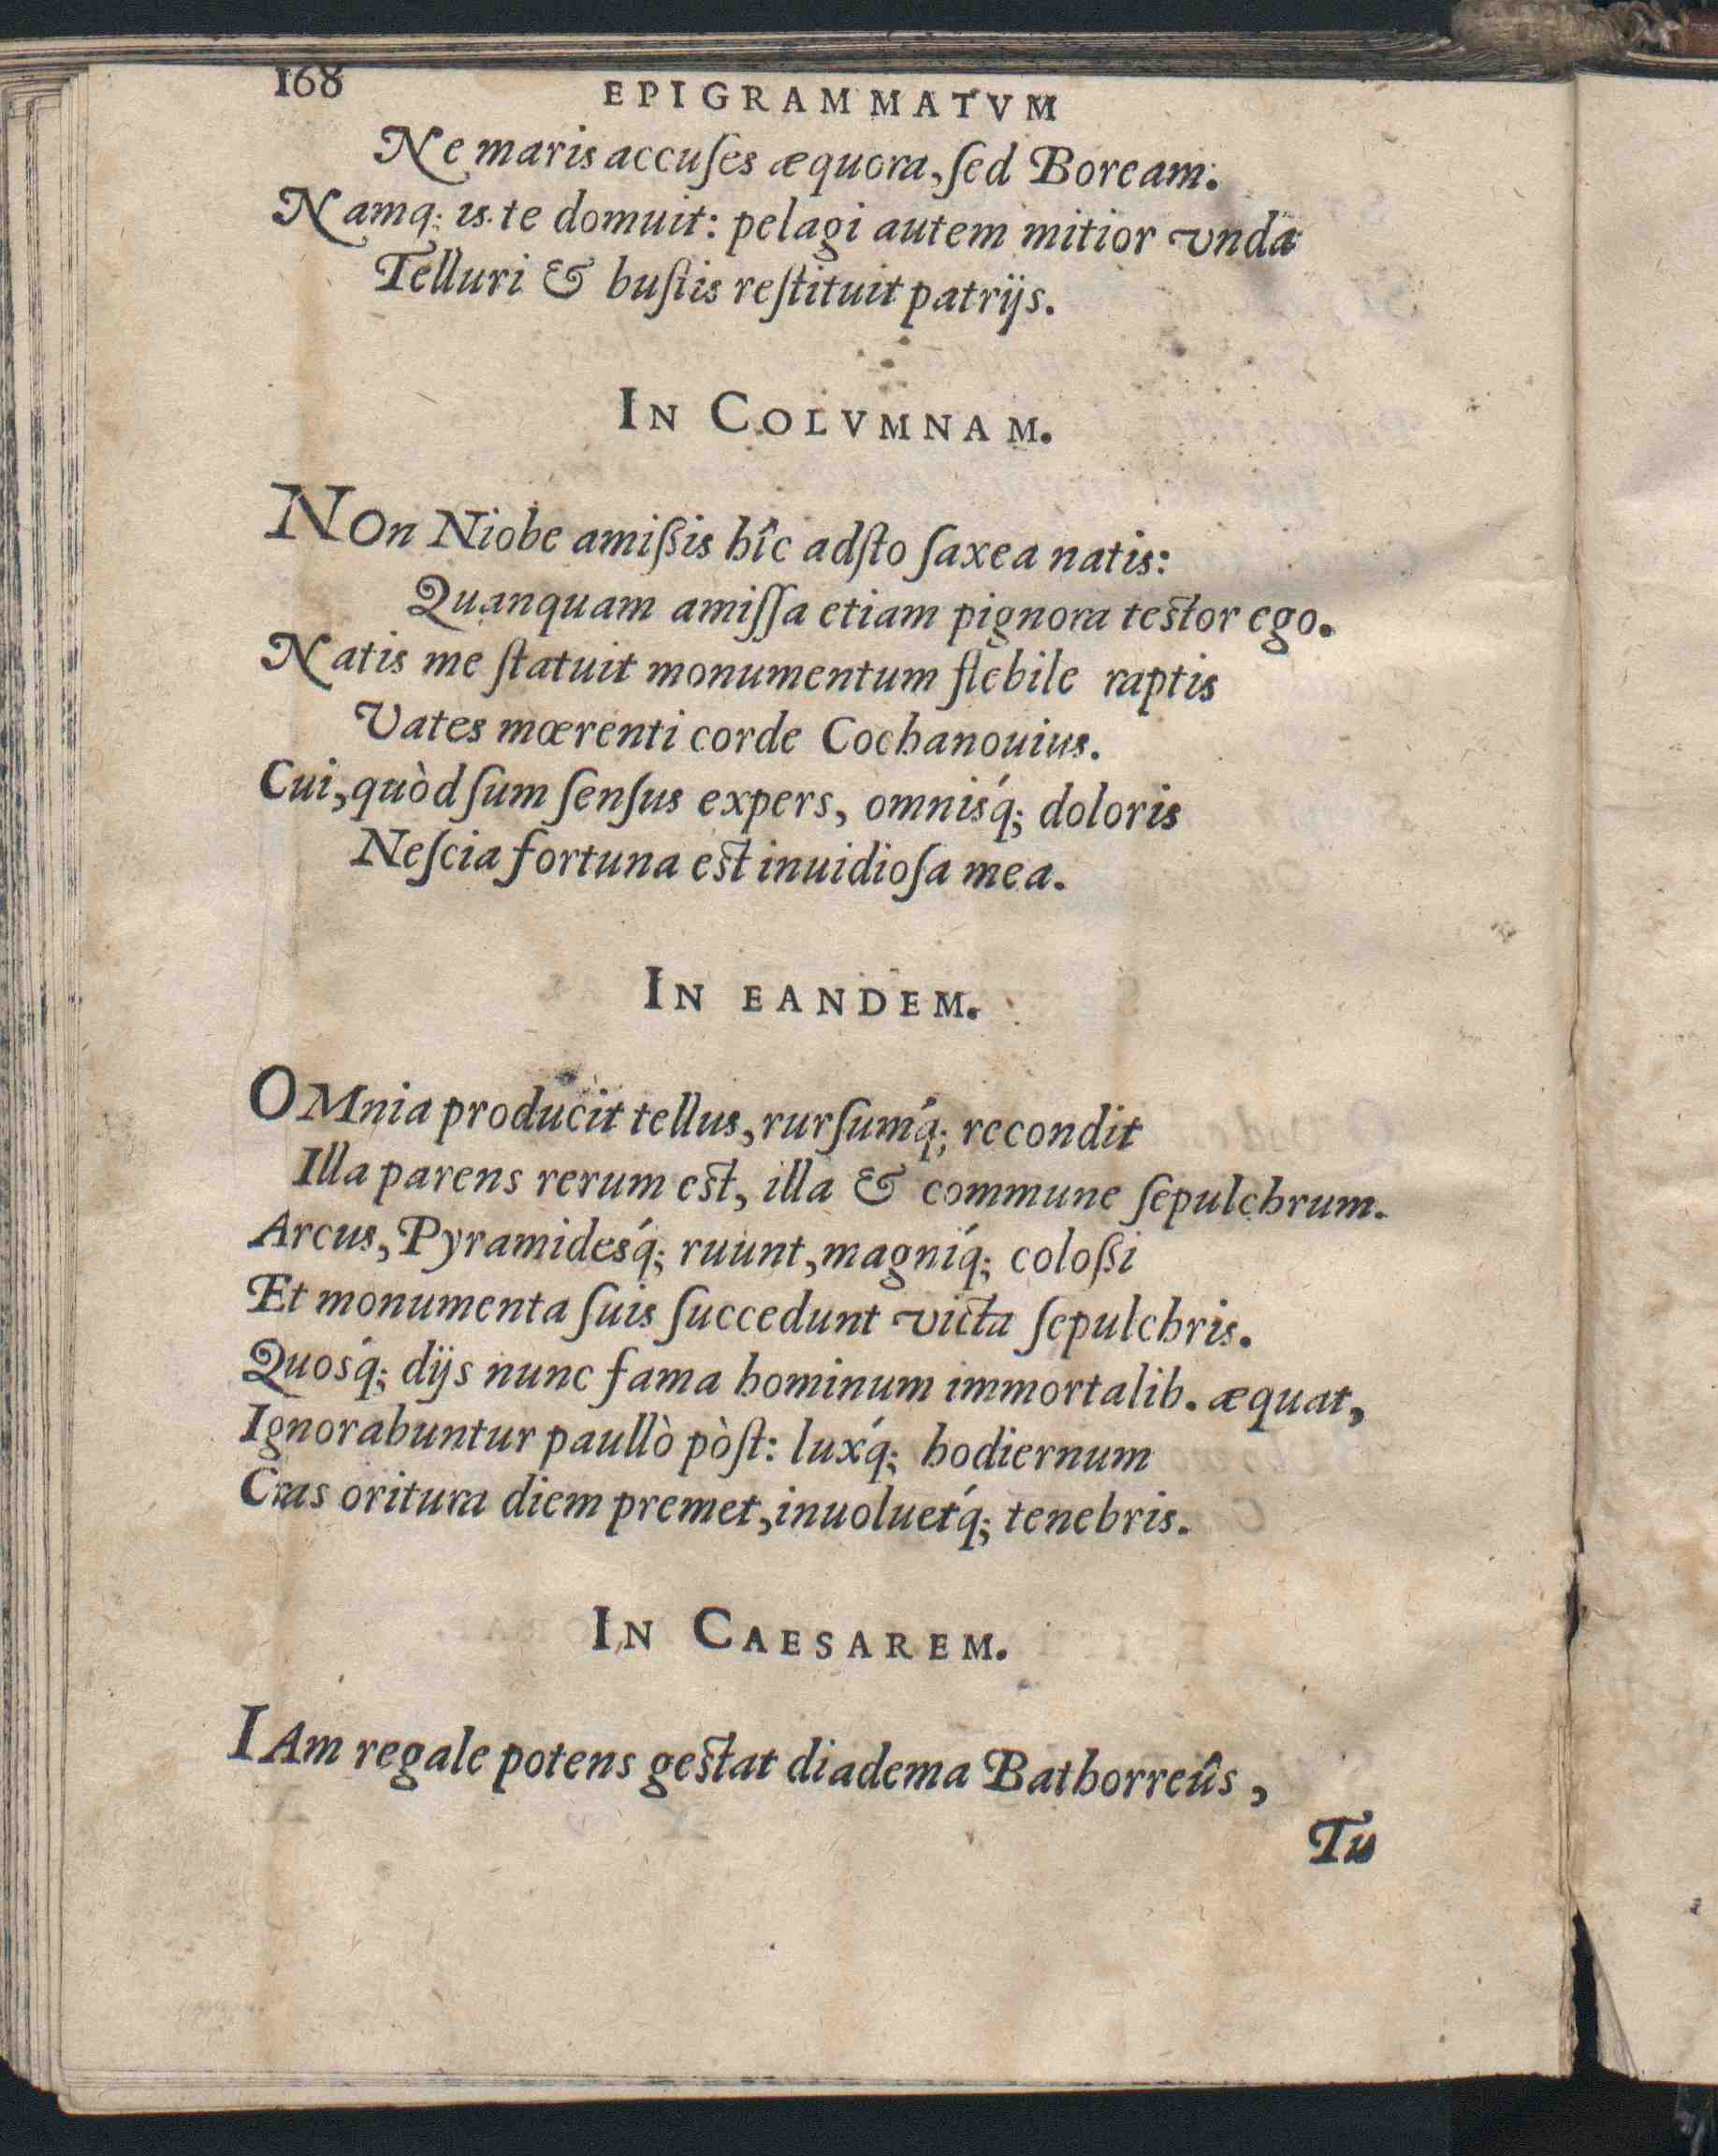 168
EPIGRAMMATVM
Ne maris accuſes æquora, ſed Boream.
Namq; is te domuit: pelagi autem mitior vnda
Telluri & buſtis reſtituit patrijs.
IN COLVMNAM.
NOn Niobe amißis hîc adſto ſaxea natis:
Quanquam amiſſa etiam pignora teſtor ego.
Natis me ſtatuit monumentum flebile raptis
Vates mœrenti corde Cochanouius.
Cui, quòd ſum ſenſus expers, omnisq́; doloris
Neſcia fortuna eſt inuidioſa mea.
IN EANDEM.
OMnia producit tellus, rurſumq́; recondit
Illa parens rerum eſt, illa & commune ſepulchrum.
Arcus, Pyramidesq́; ruunt, magniq́; coloßi
Et monumenta ſuis ſuccedunt victa ſepulchris.
Quosq́; dijs nunc fama hominum immortalib. æquat,
Ignorabuntur paullò pòſt: luxq́; hodiernum
Cras oritura diem premet, inuoluetq́; tenebris.
IN CAESAREM.
IAm regale potens geſtat diadema Bathorreûs,
Tu